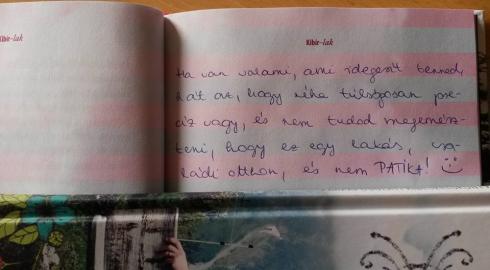 Kibic-lak
Kibic-lak
Ha van valami, ami idegesít benned,
hát az, hogy néha túlságosan pre-
cíz vagy, és nem tudod megemész-
teni, hogy ez egy lakás, csa-
ládi otthon, és nem PATIKA!